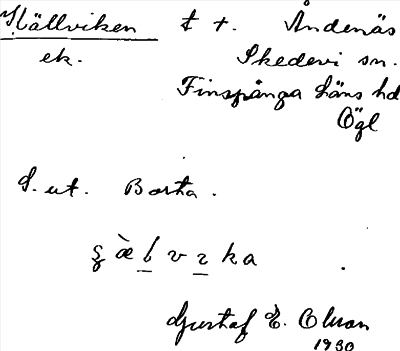 Källviken t t. Åndenäs
ek. Skedevi sn.
Finspånga läns hd
Ögl
S. ut. Borta.
Gustaf E. Olson
1930